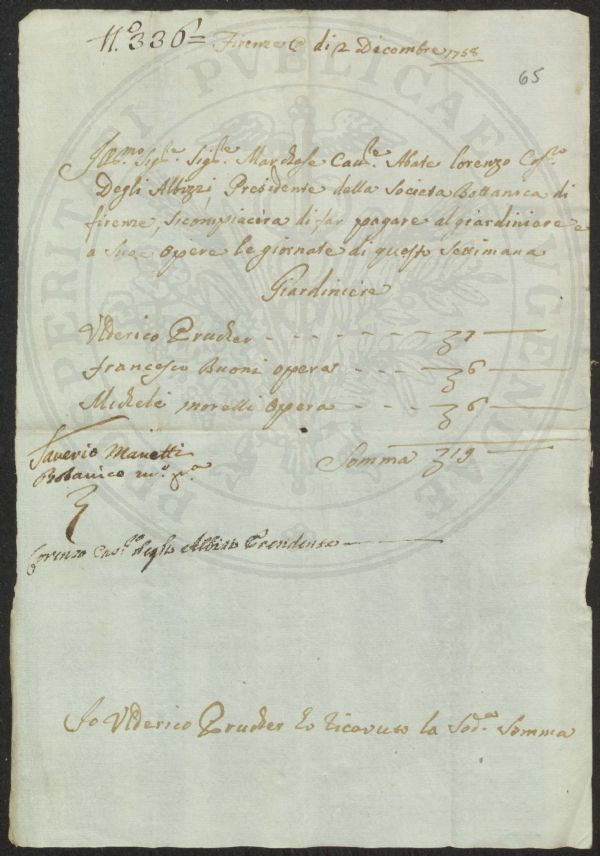 N.º 336=
Firenze @ di 2 Decembre 1758
65
Ill.mo Sig.re Sig.re Marchese Cav.re Abate Lorenzo Cos.mo
Degli Albizzi Presidente della Societa Bottanica di
firenze, Si compiacera di far pagare al giardiniere e
a Sue opere le giornate di questa Settimana
Giardiniere
Ulderico Prucker - - - - - - - 7
francesco Buoni opera - - - - 6
Michele morelli opera - - - - 6
Saverio Manetti
Botanico m.o p.a
Somma 19
Lorenzo Cav.re degli Albizi Presidente
Io Ulderico Prucker ho ricevuto la Sod.a Somma
PERITIAE IN PVBLICAE AVGENDAE